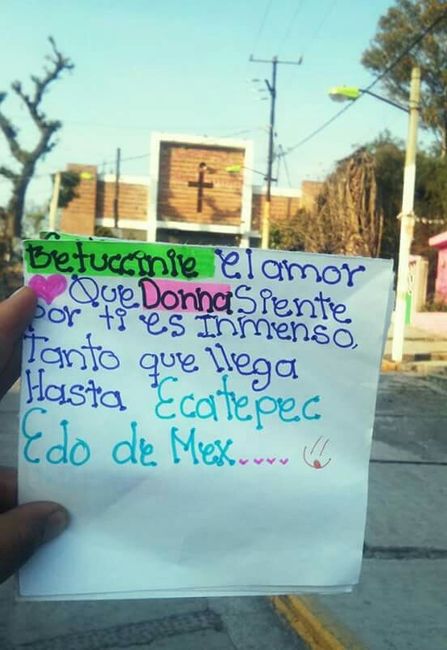 Betuccinie el amor
Que Donna Siente
por ti es Inmenso,
Tanto que llega
Hasta Ecatepec
Edo de Mex....